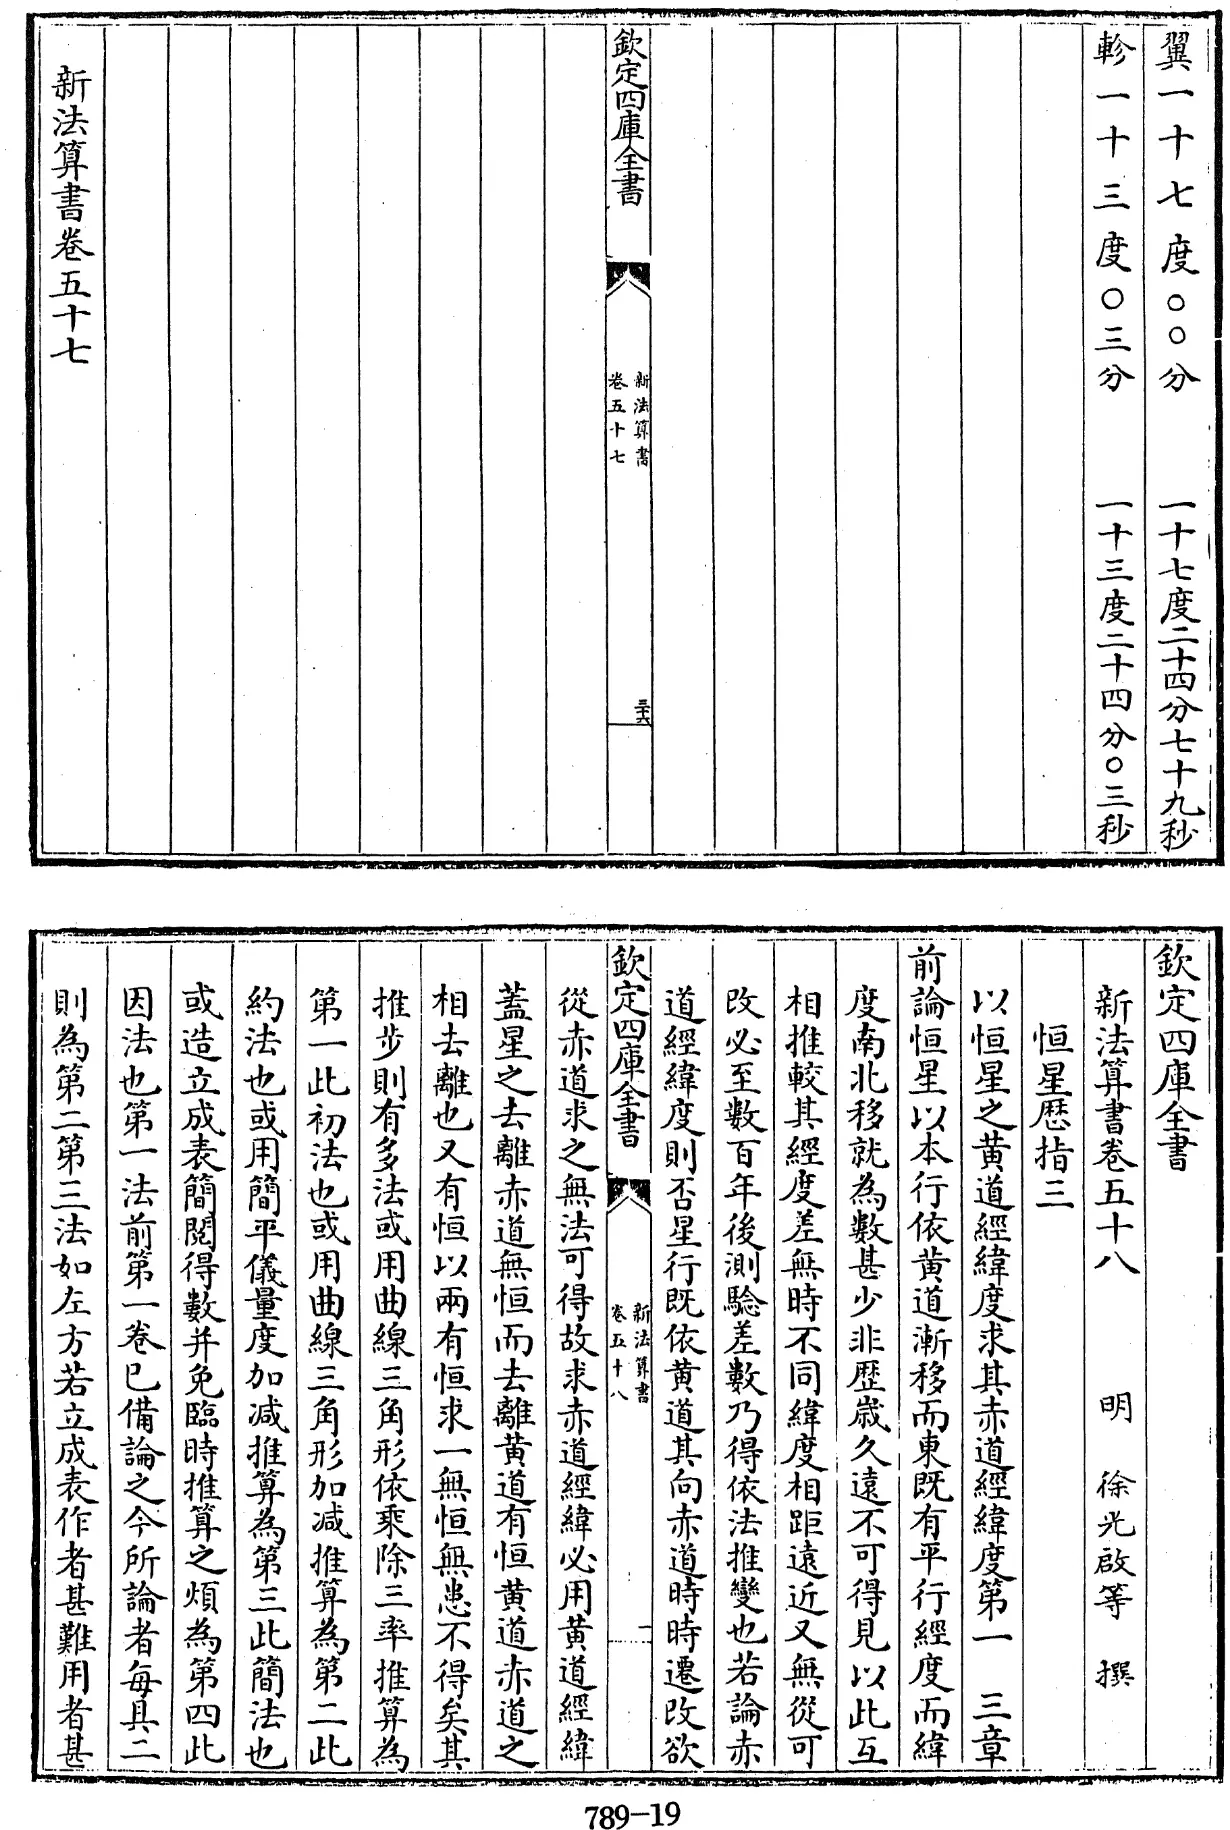 翼一十七度〇〇分　一十七度二十四分七十九秒
軫一十三度〇三分　一十三度二十四分〇三秒
欽定四庫全書
新法算書
卷五十七
三十六
新法算書卷五十七
欽定四庫全書
新法算書卷五十八　明　徐光啟等　撰
恒星歷指三
以恒星之黄道經緯度求其赤道經緯度第一　三章
前論恒星以本行依黄道漸移而東既有平行經度而緯
度南北移就為數甚少非歷歲久遠不可得見以此互
相推較其經度差無時不同緯度相距遠近又無從可
改必至數百年後測驗差數乃得依法推變也若論赤
道經緯度則否星行既依黄道其向赤道時時遷改欲
欽定四庫全書
新法算書
卷五十八
一
從赤道求之無法可得故求赤道經緯必用黄道經緯
蓋星之去離赤道無恒而去離黄道有恒黄道赤道之
相去離也又有恒以兩有恒求一無恒無患不得矣其
推步則有多法或用曲線三角形依乘除三率推算為
第一此初法也或用曲線三角形加减推算為第二此
約法也或用簡平儀量度加减推算為第三此簡法也
或造立成表簡閱得數并免臨時推算之煩為第四此
因法也第一法前第一卷已備論之今所論者每具二
則為第二第三法如左方若立成表作者甚難用者甚
789—19